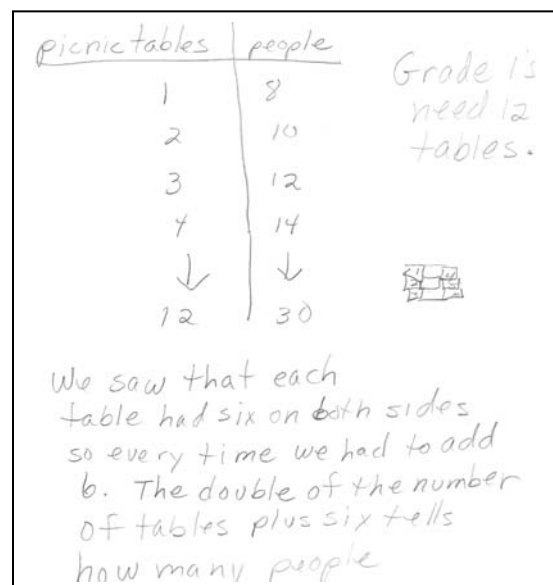 picnic tables people
1 8
2 10
3 12
4 14
↓ ↓
12 30
Grade 1's
need 12
tables.
We saw that each
table had six on both sides
so every time we had to add
6. The double of the number
of tables plus six tells
how many people